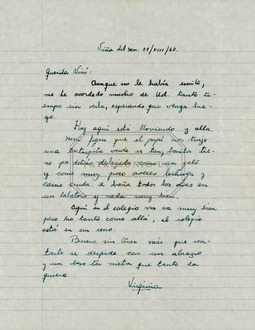 Viña del mar 11/VIII/60.
Querida Ninó:
Aunque no le había escrito,
me he acordado mucho de Ud. tanto ti-
empo sin verla, esperando que venga lue-
go.
Hoy aquí está lloviendo y allá.
Mimí fíjese que el papi nos trajo
una tortuguita verde es tan bonita tie-
ne pa
como un gato
y come muy poco
lechuga y
carne cruda
todos los días en
un
y nada muy bien.
Aquí en el colegio me va muy bien
pero no tanto como allá, el colegio
está en un cerro.
Bueno sin tener más que con-
tarle se despide con un abrazo
y un beso tu nieta que tanto la
quiere
Virginia